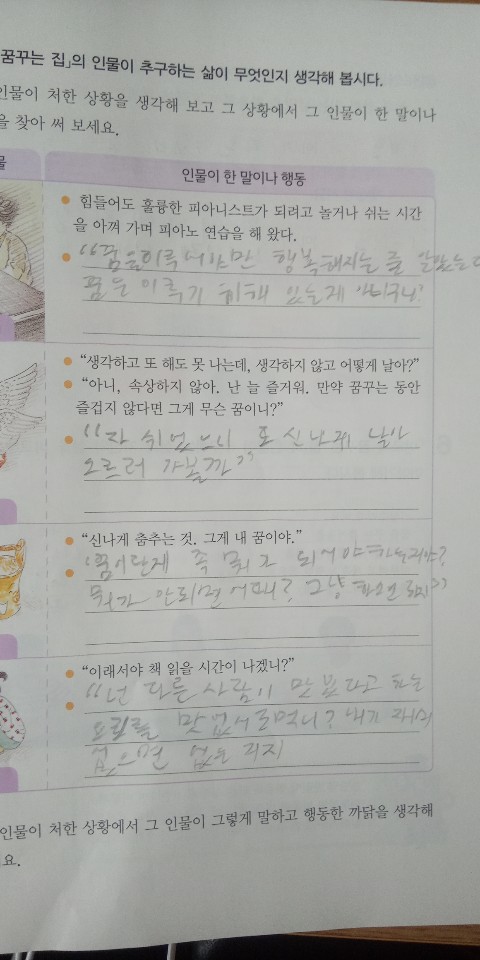 꿈꾸는 집」의 인물이 추구하는 삶이 무엇인지 생각해 봅시다.
인물이 처한 상황을 생각해 보고 그 상황에서 그 인물이 한 말이나
을 찾아 써 보세요.
물
인물이 한 말이나 행동
힘들어도 훌륭한 피아니스트가 되려고 놀거나 쉬는 시간
을 아껴 가며 피아노 연습을 해 왔다.
"꿈을 이루어야만 행복해지는 줄 알았는데
꿈을 이루기 위해 있는게 아니구나
"생각하고 또 해도 못 나는데, 생각하지 않고 어떻게 날아?"
"아니, 속상하지 않아. 난 늘 즐거워. 만약 꿈꾸는 동안
즐겁지 않다면 그게 무슨 꿈이니?"
"자 쉬었으니 또 신나게 날아
오르러 가볼까"
"신나게 춤추는 것. 그게 내 꿈이야."
꼭 뭐가 되어야
뭐가 안되면 어때? 그냥 하면 되지"
"이래서야 책 읽을 시간이 나겠니?"
"넌 다른 사람이 맛 없다고 하는
요리를 맛 없어 하니? 내가
없으면 없는 거지
인물이 처한 상황에서 그 인물이 그렇게 말하고 행동한 까닭을 생각해
요.